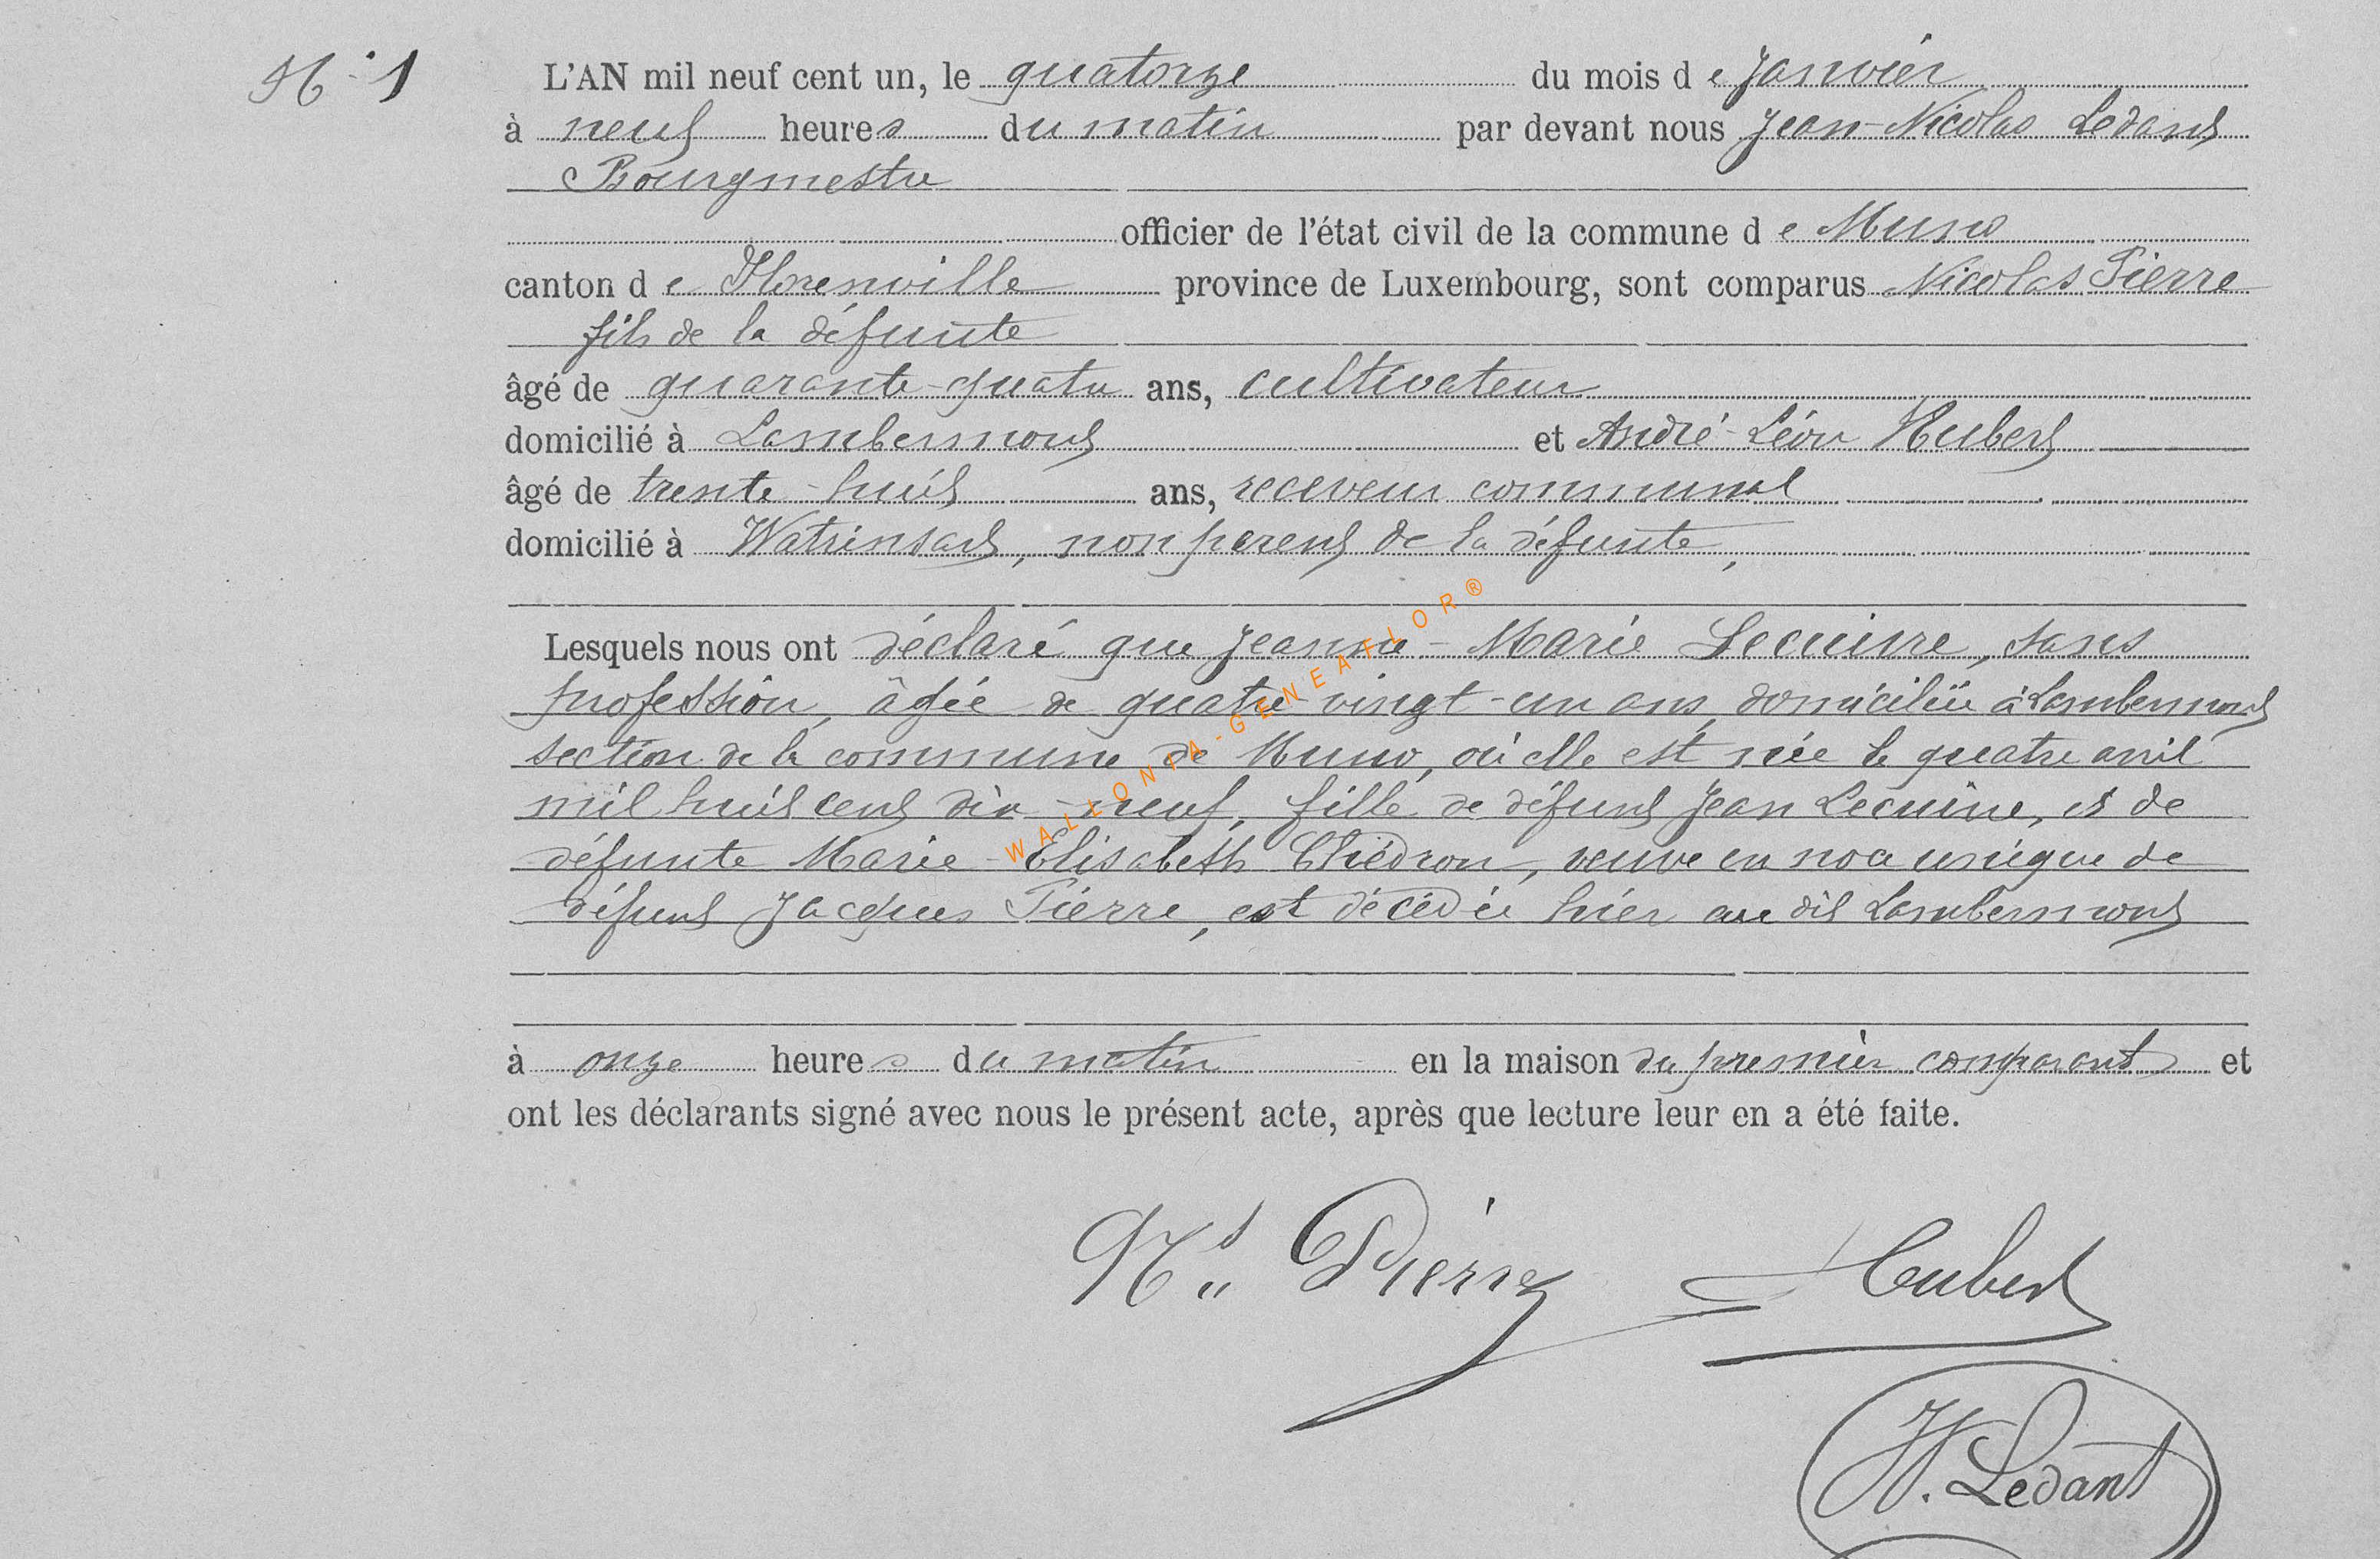 N° 1
L'AN mil neuf cent un, le quatorze du mois de Janvier
à neuf heures du matin par devant nous Jean-Nicolas Ledant
Bourgmestre
officier de l'état civil de la commune de Muno
canton de Florenville province de Luxembourg, sont comparus Nicolas Pierre
fils de la défunte
âgé de quarante-quatre ans, cultivateur
domicilié à Lambermont et André-Léon Hubert
âgé de trente-huit ans, receveur communal
domicilié à Watrinsart, non parent de la défunte,
Lesquels nous ont déclaré que Jeanne-Marie Lecuivre, sans
profession, âgée de quatre-vingt-un ans, domiciliée à Lambermont
section de la commune de Muno, où elle est née le quatre avril
mil huit cent dix-neuf, fille de défunt Jean Lecuivre, et de
défunte Marie-Elisabeth Thiédron, veuve en noce unique de
défunt Jacques Pierre, est décédée hier au dit Lambermont
à onze heures du matin en la maison du premier comparant et
ont les déclarants signé avec nous le présent acte, après que lecture leur en a été faite.
Ns Pierre Hubert
N. Ledant
WALLONIA-GENEAFLOR®